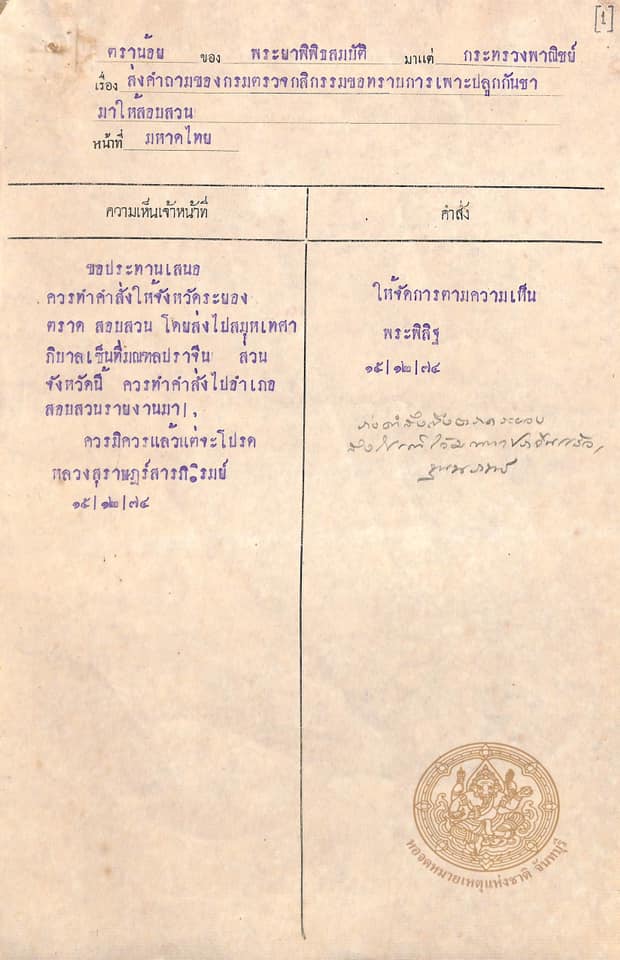 [1]
ตราน้อย ของ พระยาพิพิธสมบัติ มาแต่ กระทรวงพาณิชย์
เรื่อง ส่งคำถามของกรมตรวจกสิกรรมขอทราบการเพาะปลูกกันชา
มาให้สอบสวน
หน้าที่ มหาดไทย
ความเห็นเจ้าหน้าที่
ขอประทานเสนอ
ควรทำคำสั่งให้จังหวัดระยอง
ตราด สอบสวน โดยส่งไปสมุหเทศา
ภิบาลเซ็นที่มณฑลปราจีน สวน
จังหวัดนี้ ควรทำคำสั่งไปอำเภอ
สอบสวนรายงานมา|,
ควรมิควรแล้วแต่จะโปรด
หลวงสุราษฎร์สารภิรมย์
๑๕|๑๒|๗๔
คำสั่ง
ให้จัดการตามความเห็น
พระพิสิฐ
๑๕|๑๒|๗๔
หอจดหมายเหตุแห่งชาติ จันทบุรี